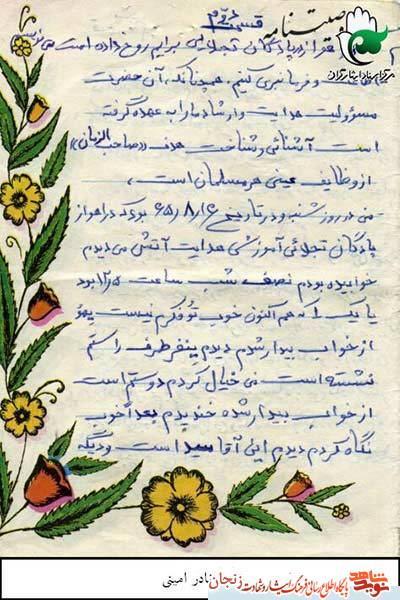 وصیتنامه
قسمت دوم
مرکز اسناد ایثارگران
اهواز در پادگان تجلائی برایم روخ داده است می نویسم
و فرمانبری کنیم. همچنانکه آن حضرت
مسئولیت هدایت و ارشاد ما را به عهده گرفته
است آشنائی و شناخت هدف «صاحب الزمان»
از وظایف عینی هر مسلمان است.
من در روز شنبه و در تاریخ ۶۵/۸/۱۶ بود که در اهواز
پادگان تجلائی آموزشی هدایت آتش می دیدم
خوابیده بودم نصف شب ساعت ۱۲/۵ بود
یا یک که هم اکنون خوب تو فکرم نیست یهو
از خواب بیدار شدم دیدم ینفر طرف راستم
نشسته است من خیال کردم دوستم است
از خواب بیدار شده خندیدم بعداً خوب
نگاه کردم دیدم این آقا سید است و دیگه
نادر امینی
پایگاه اطلاع رسانی فرهنگ ایثار و شهادت زنجان